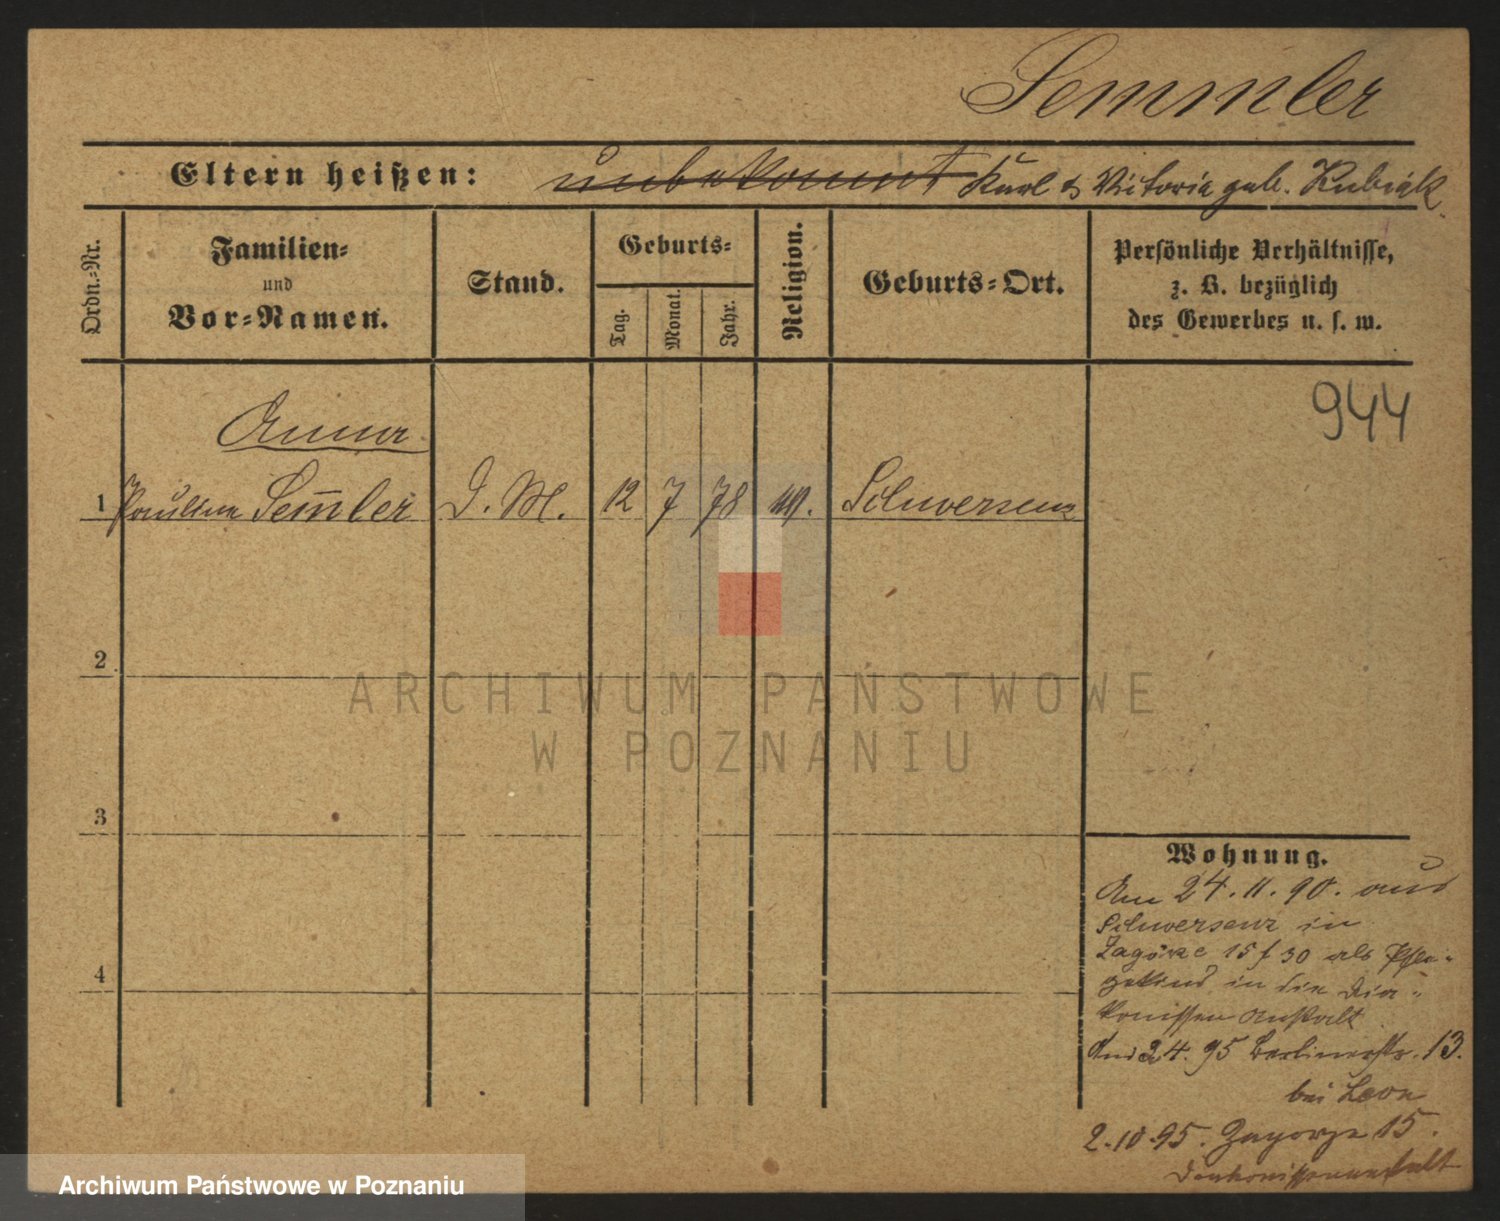 Semmler
Eltern heißen: unbekannt Karl & Victoria geb. Kubiak
Ordn.-Nr.
Familien-
und
Vor-Namen.
Stand.
Geburts-
Tag.
Monat.
Jahr.
Religion.
Geburts-Ort.
Persönliche Verhältnisse,
z. B. bezüglich
des Gewerbes u. s. w.
944
Anna
1 Pauline Sem̄ler D. M. 12 7 78 Schwersenz
2
3
4
Wohnung.
Am 24.11.90. aus
Schwersenz in
Zagórze 15 f 30 als Pfle-
gekind in die Dia-
konissen Anstalt
2.4.95 Berlinerstr. 13.
bei Leon
2.10.95. Zagorze 15.
Diakonissenanstalt
ARCHIWUM PAŃSTWOWE
W POZNANIU
Archiwum Państwowe w Poznaniu